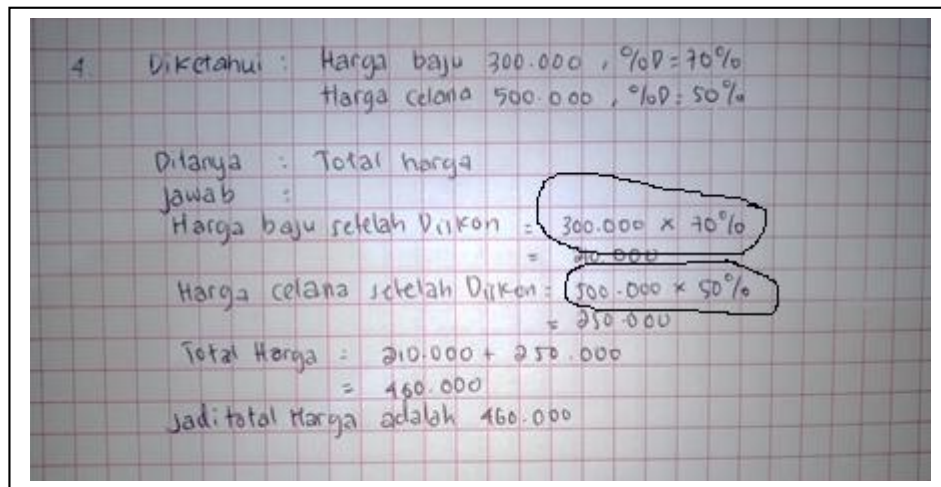 4. Diketahui : Harga baju 300.000 , %D = 70%
Harga celana 500.000 , %D = 50%
Ditanya : Total harga
Jawab :
Harga baju setelah Diskon = 300.000 x 70%
= 210.000
Harga celana setelah Diskon = 500.000 x 50%
= 250.000
Total Harga = 210.000 + 250.000
= 460.000
Jadi total Harga adalah 460.000